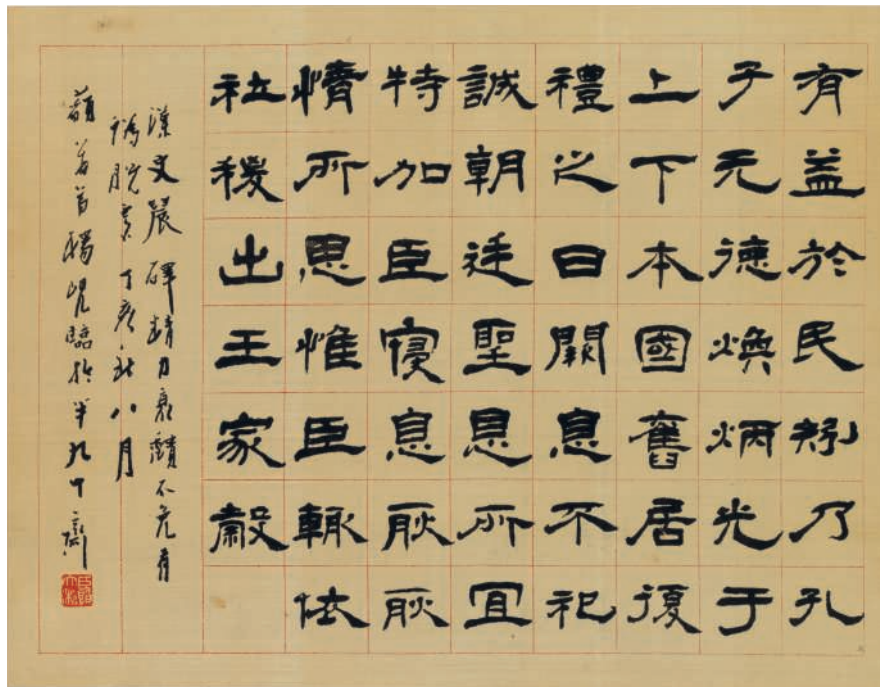 有益於民矧乃孔
子元德煥炳光于
上下本國舊居復
禮之日闕息不祀
誠朝廷聖恩所宜
特加臣寑息耿耿
情所思惟臣輒依
社稷出王家穀
漢史晨碑精力衰頹不免有
譌脫丁亥秋八月
臨於半九十齋